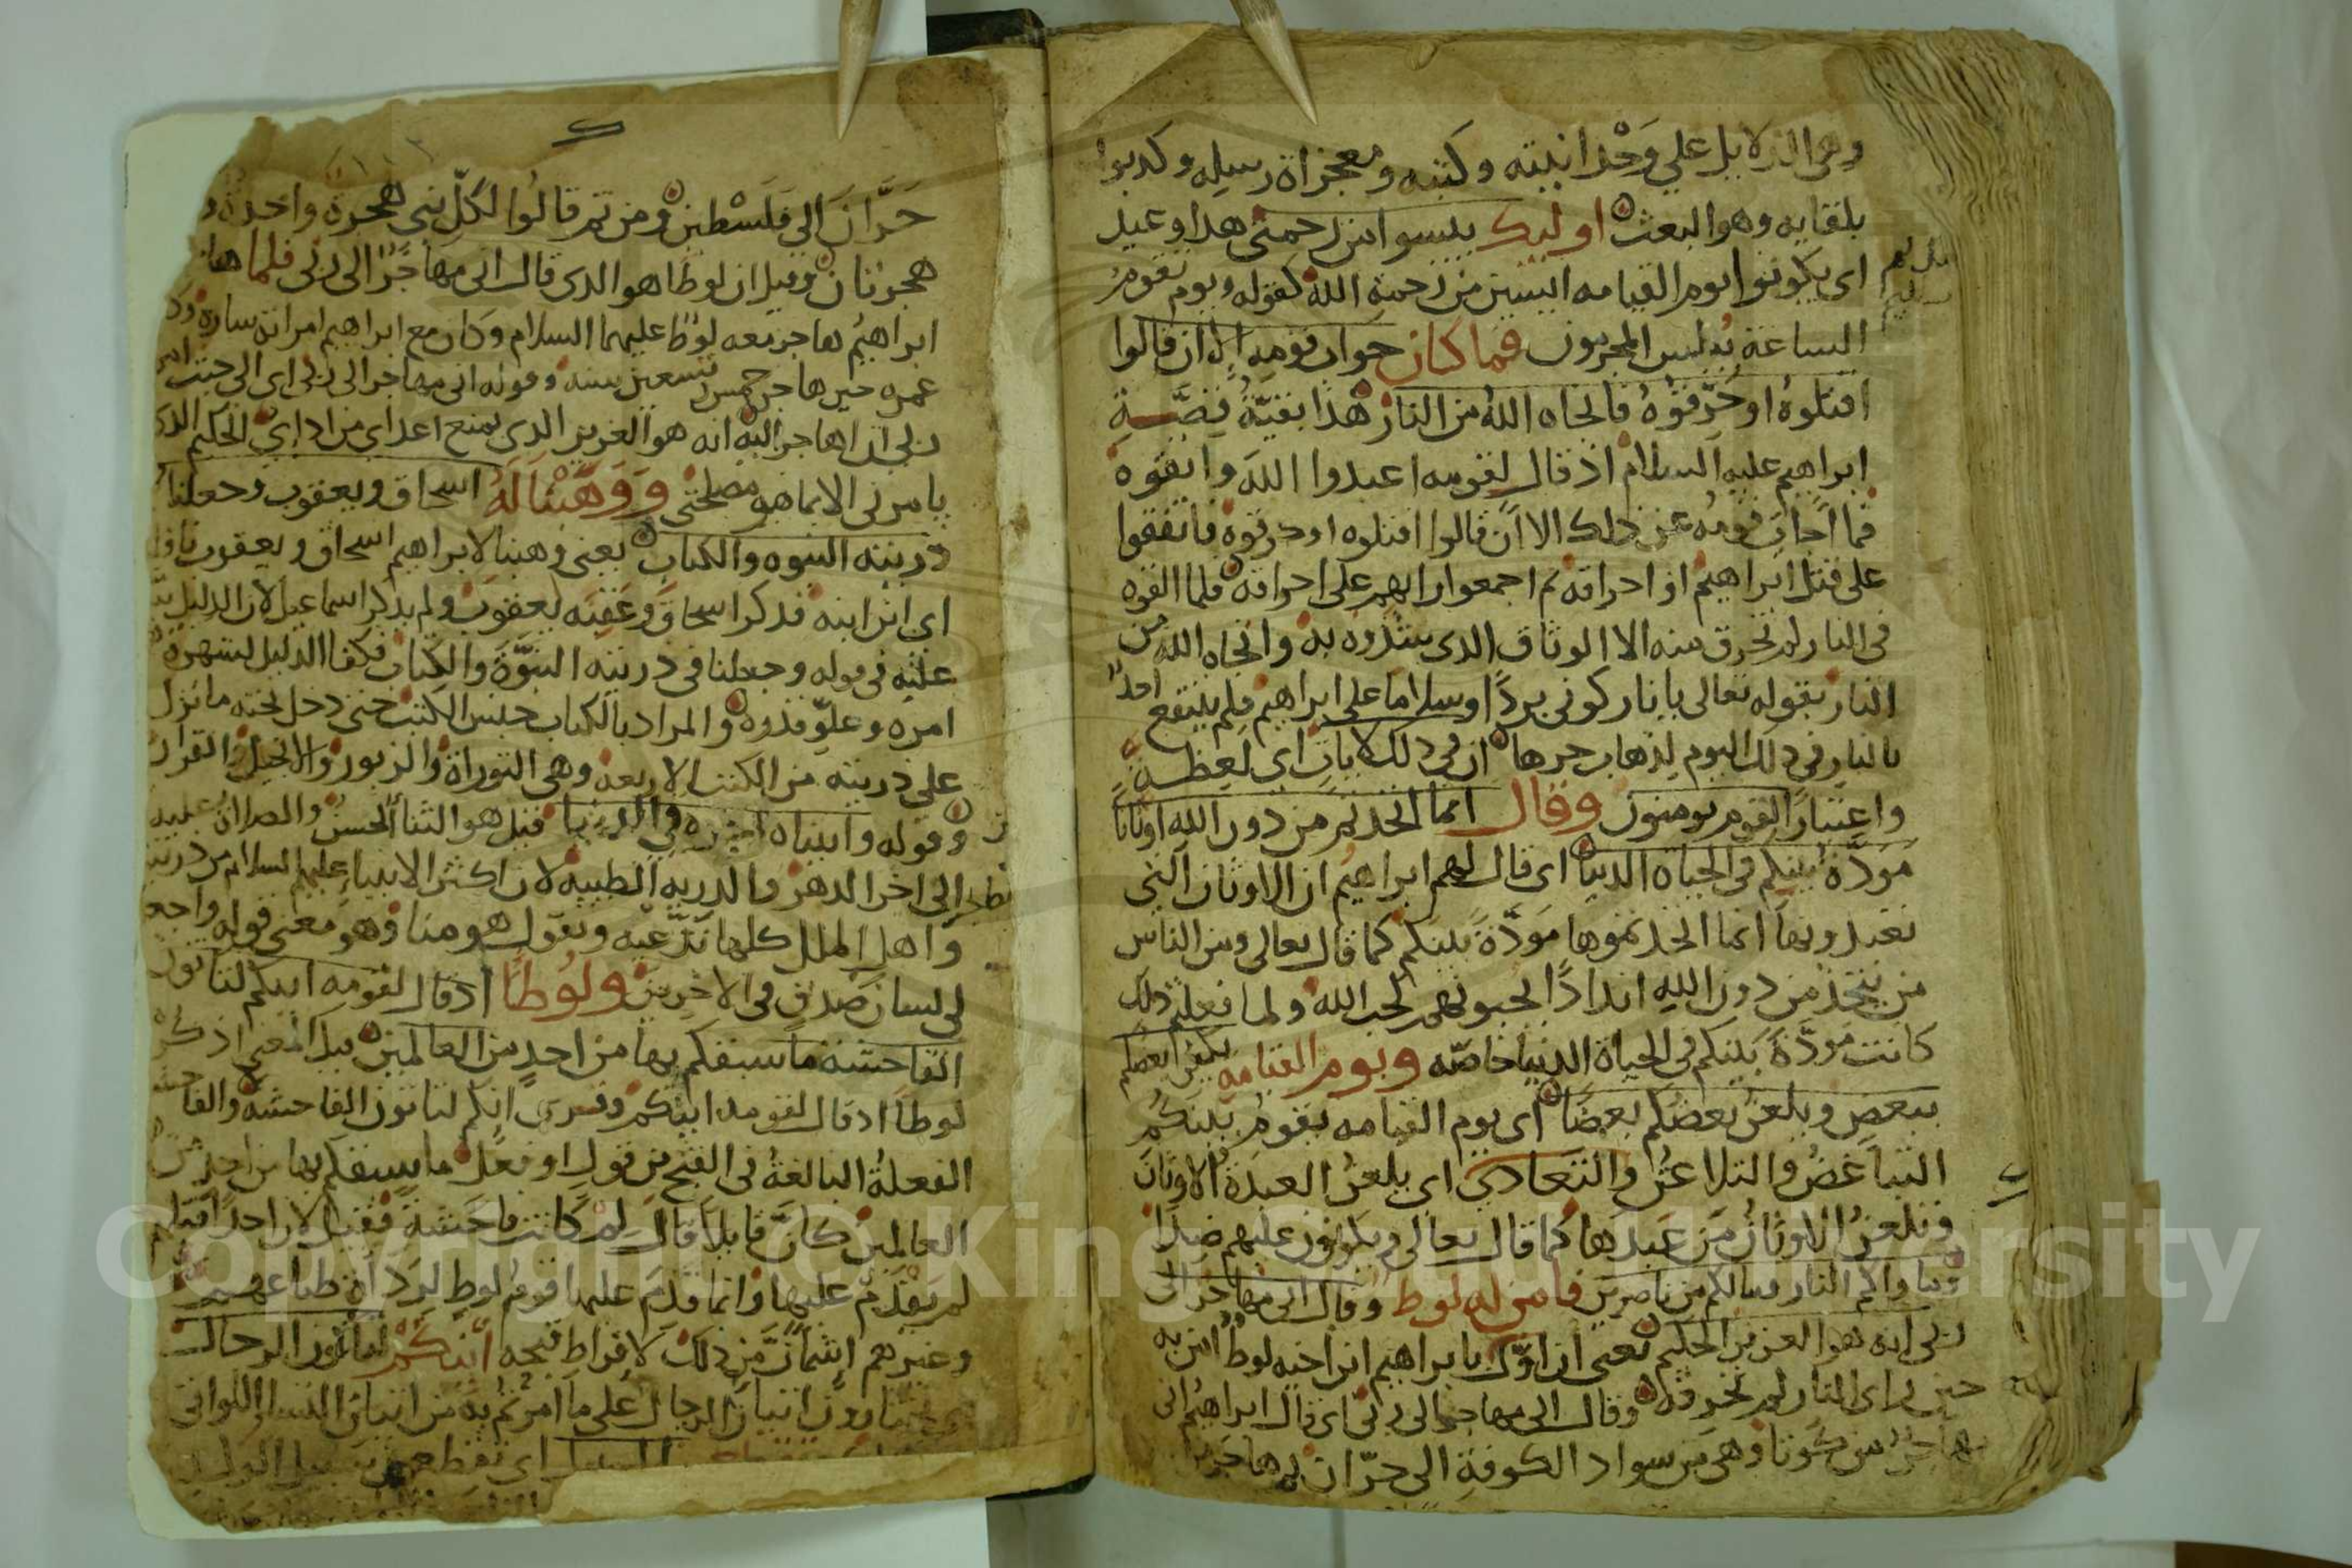 وهي الدلايل علي وحدانيته وكتبه ومعجزاة رسله وكدبوا
بلقايه وهو البعث اوليك ييسوا من رحمتي هدا وعيد
اي يكونوا يوم القيامه ايسين من رحمة الله كقوله ويوم تقوم
الساعة يبلس المجرمون فما كان جواب قومه الا ان قالوا
اقتلوه او حرقوه فانجاه الله من النار هذا بقية قصة
ابراهيم عليه السلام اذ قال لقومه اعبدوا الله واتقوه
فما اجاب قومه عن ذلك الا ان قالوا اقتلوه او حرقوه فاتفقوا
على قتل ابراهيم او احراقه ثم اجمعوا رايهم على احراقه فلما القوه
في النار لم تحرق منه الا الوثاق الذي شدوه به وانجاه الله من
النار بقوله تعالى يا نار كوني بردا وسلاما على ابراهيم فلم ينتفع احد
بالنار في ذلك اليوم لذهاب حرها ان في ذلك لايات اي لعظة
واعتبار القوم يومنون وقال انما اتخذتم من دون الله اوثانا
مودة بينكم في الحياة الدنيا اي قال لهم ابراهيم ان الاوثان التي
تعبدونها انما اتخذتموها مودة بينكم كما قال تعالى ومن الناس
من يتخذ من دون الله اندادا يحبونهم كحب الله ولما فعلتم ذلك
كانت مودة بينكم في الحياة الدنيا خاصه ويوم القيامه يكفر بعضكم
ببعض ويلعن بعضكم بعضا اي يوم القيامه يقوم بينكم
التباغض والتلاعن والتعادي اي يلعن العبدة الاوثان
وتلعن الاوثان من عبدها كما قال تعالى ويكونون عليهم ضدا
وماواكم النار ومالكم من ناصرين فامن له لوط وقال اني مهاجر الى
ربي انه هو العزيز الحكيم يعني ان اول يا براهيم ابن اخيه لوط امن به
حين راى النار لم تحرقه وقال اني مهاجر الى ربي اي قال ابراهيم اني
مهاجر من كوثا وهي من سواد الكوفة الى حران ثم هاجر من
حران الى فلسطين ومن ثم قالوا لكل نبي هجرة واحدة
هجرتان وقيل ان لوطا هو الذي قال اني مهاجر الى ربي فلما هاجر
ابراهيم هاجر معه لوط عليهما السلام وكان مع ابراهيم امراته سارة
عمره حين هاجر خمس وتسعين سنه وقوله اني مهاجر الى ربي اي الى حيث
ربي ان اهاجر اليه انه هو العزيز الذي يمنع اعداي من اداي الحكيم الذي
يامرني الا بما هو مصلحتي ووهبنا له اسحاق ويعقوب وجعلنا
ذريته النبوه والكتاب يعني وهبنا لابراهيم اسحاق ويعقوب
اي ابن ابنه فذكر اسحاق وعقبه يعقوب ولم يذكر اسماعيل لان الدليل
عليه في قوله وجعلنا في ذريته النبوة والكتاب فكفا الدليل لشهرة
امره وعلو قدره والمراد بالكتاب جنس الكتب حتى دخل تحته ما نزل
على ذريته من الكتب الاربعه وهي التوراة والزبور والانجيل والقران
وقوله واتيناه اجره في الدنيا قيل هو الثنا الحسن والصلاة عليه
الى اخر الدهر والدريه الطيبه لان اكثر الانبيا عليهم السلام من ذريته
واهل الملل كلها تدعيه وتقول هو منا وهو معنى قوله واجعل
لي لسان صدق في الاخرين ولوطا اذ قال لقومه انكم لتاتون
الفاحشة ما سبقكم بها من احد من العالمين قيل المعنى اذكر
لوطا اذ قال لقومه اينكم وقري انكم لتاتون الفاحشة والفا
الفعلة البالغة في القبح من قول او فعل ما سبقكم بها من احد من
العالمين كان قايلا قال لم كانت فاحشة فقيل لان احدا قبلهم
لم يقدم عليها وانما قدم عليها قوم لوط
وغيرهم اشمازت من ذلك لافراط قبحه اينكم لتاتون الرجال
اتيان الرجال على ما امرتم به من اتيان النسا اللواتي
السبيل اي تقطعون سبيل الولد